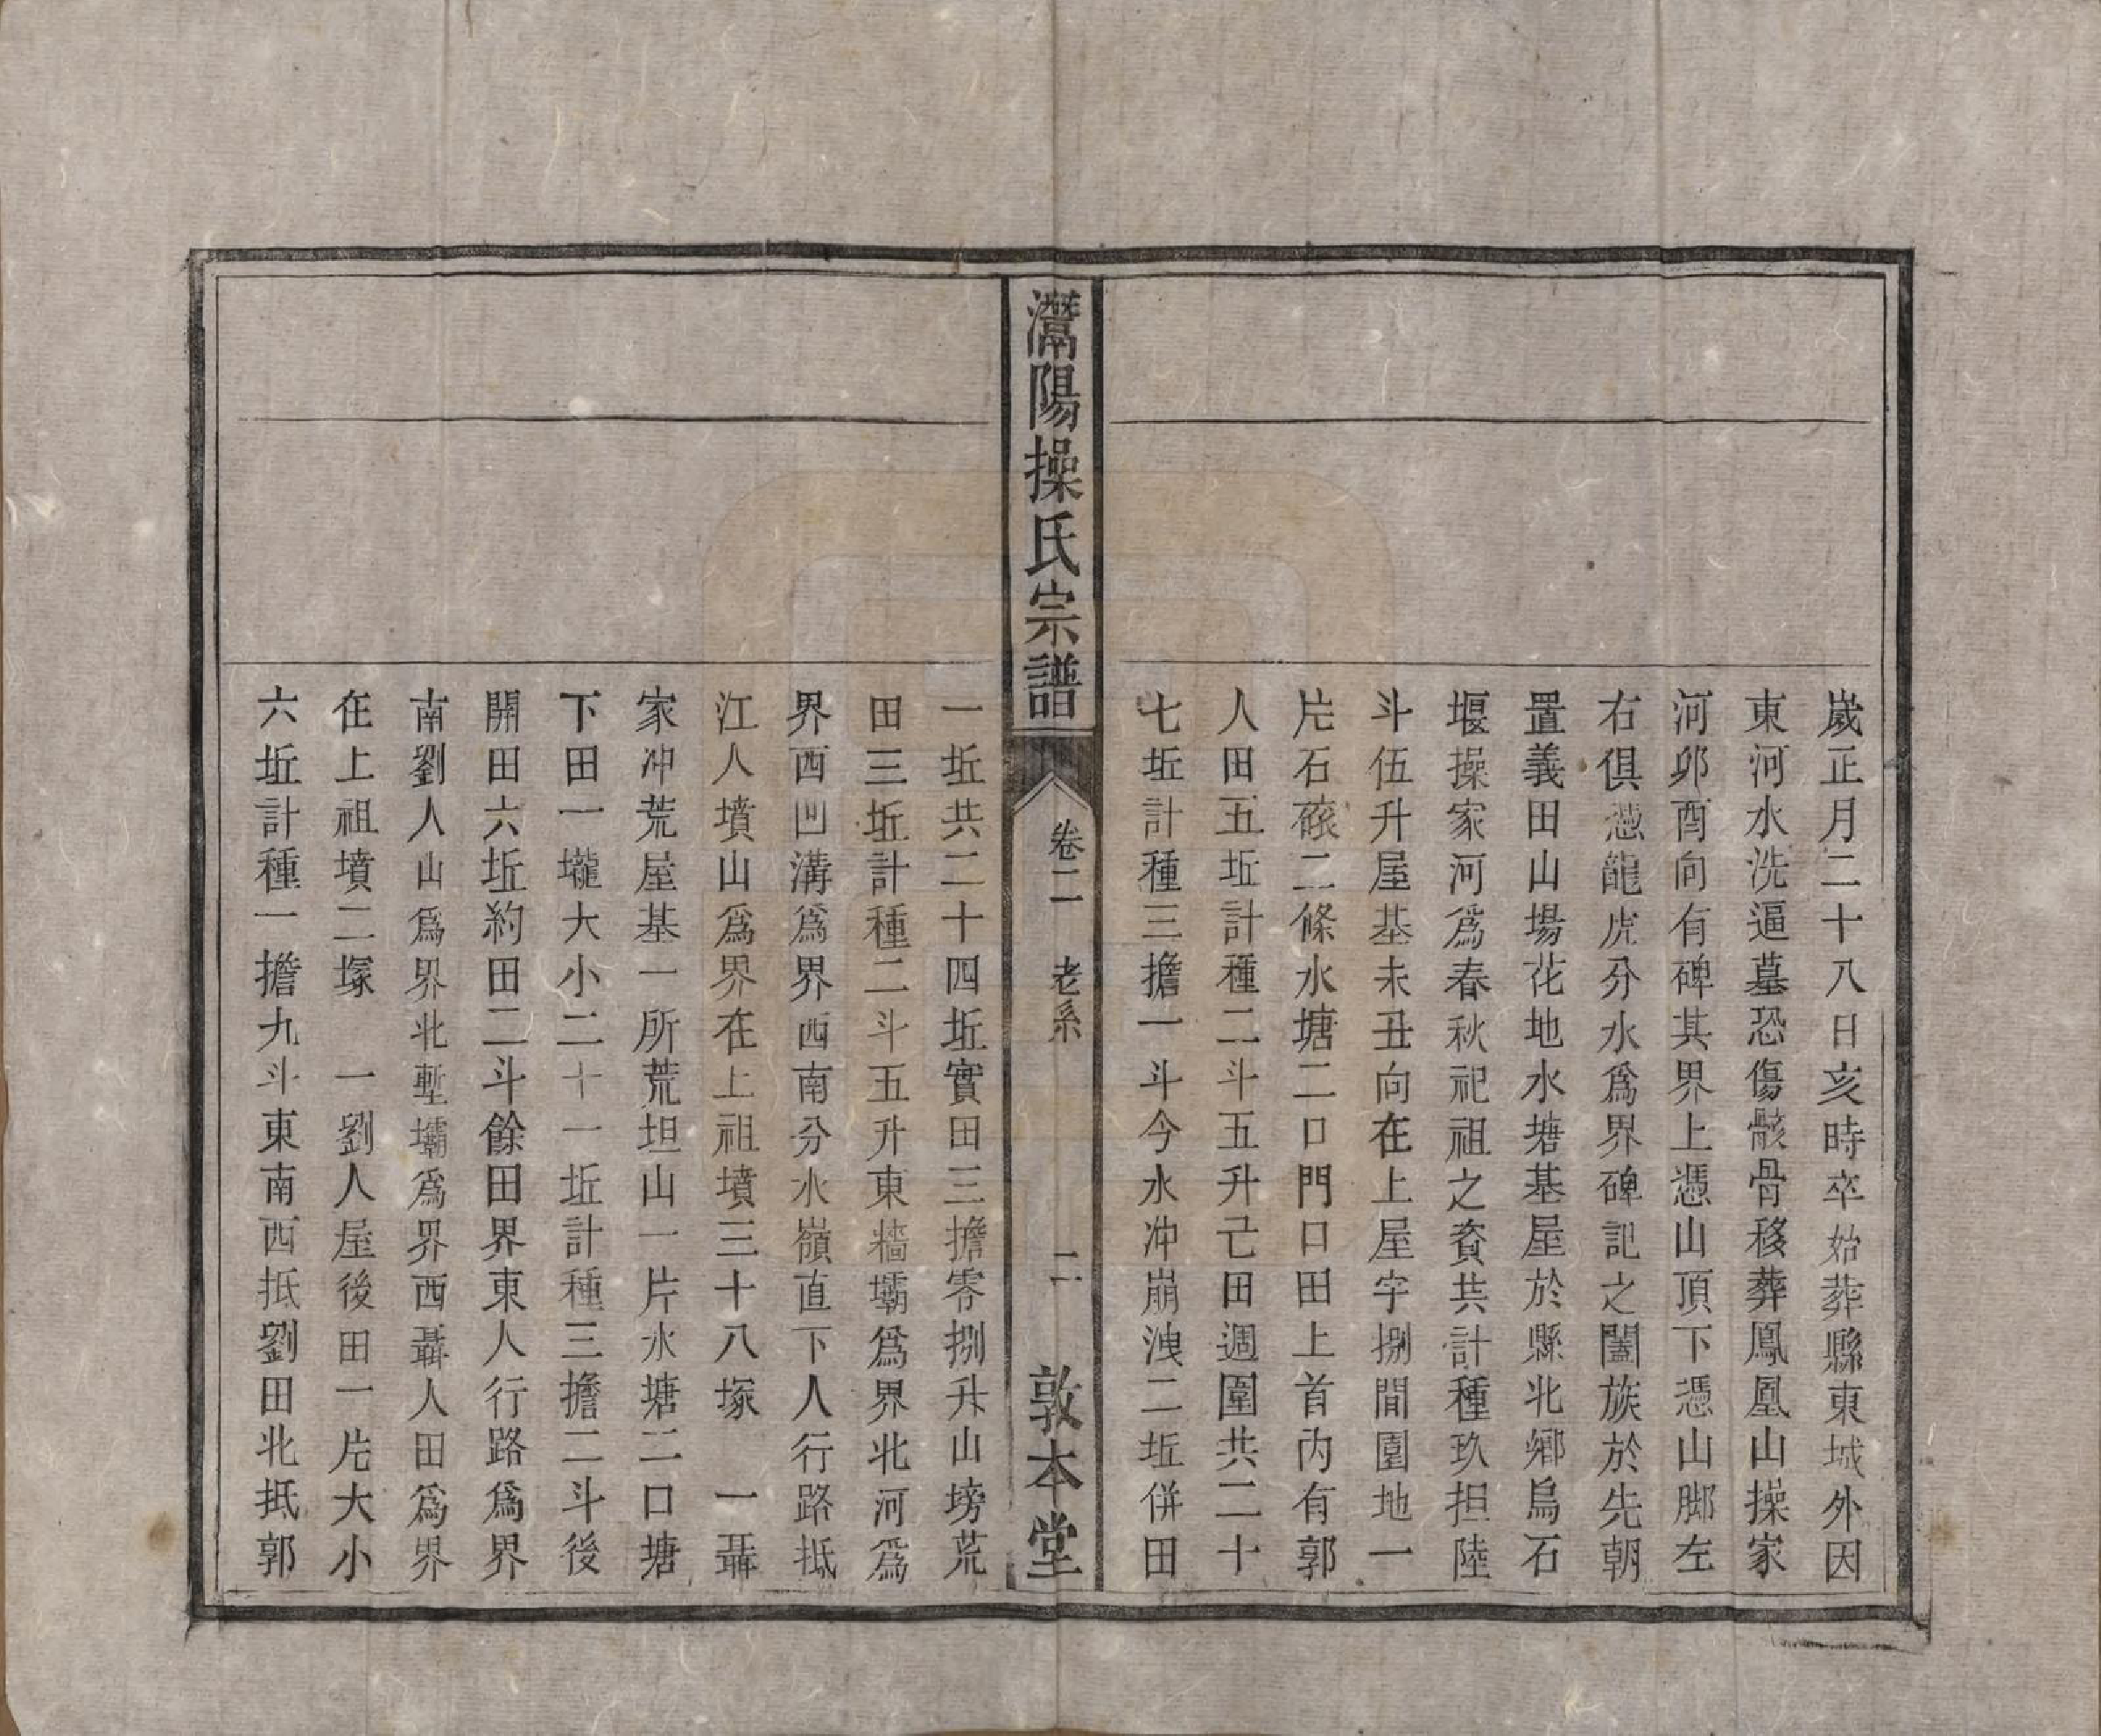 歲正月二十八日亥時卒始葬縣東城外因
東河水洗逼墓恐傷骸骨移葬鳳凰山操家
河卯酉向有碑其界上憑山頂下憑山脚左
右俱憑龍虎分水爲界碑記之闔族於先朝
置義田山場花地水塘基屋於縣北鄉烏石
堰操家河爲春秋祀祖之資共計種玖担陸
斗伍升屋基未丑向在上屋字捌間園地一
片石磙二條水塘二口門口田上首內有郭
人田五坵計種二斗五升己田週圍共二十
七坵計種三擔一斗今水冲崩洩二坵併田
灊陽操氏宗譜 卷二 老系 二 敦本堂
一坵共二十四坵實田三擔零捌升山塝荒
田三坵計種二斗五升東牆壩爲界北河爲
界西凹溝爲界西南分水嶺直下人行路抵
江人墳山爲界在上祖墳三十八塚 一聶
家冲荒屋基一所荒坦山一片水塘二口塘
下田一壠大小二十一坵計種三擔二斗後
開田六坵約田二斗餘田界東人行路爲界
南劉人山爲界北塹壩爲界西聶人田爲界
在上祖墳二塚 一劉人屋後田一片大小
六坵計種一擔九斗東南西抵劉田北抵郭